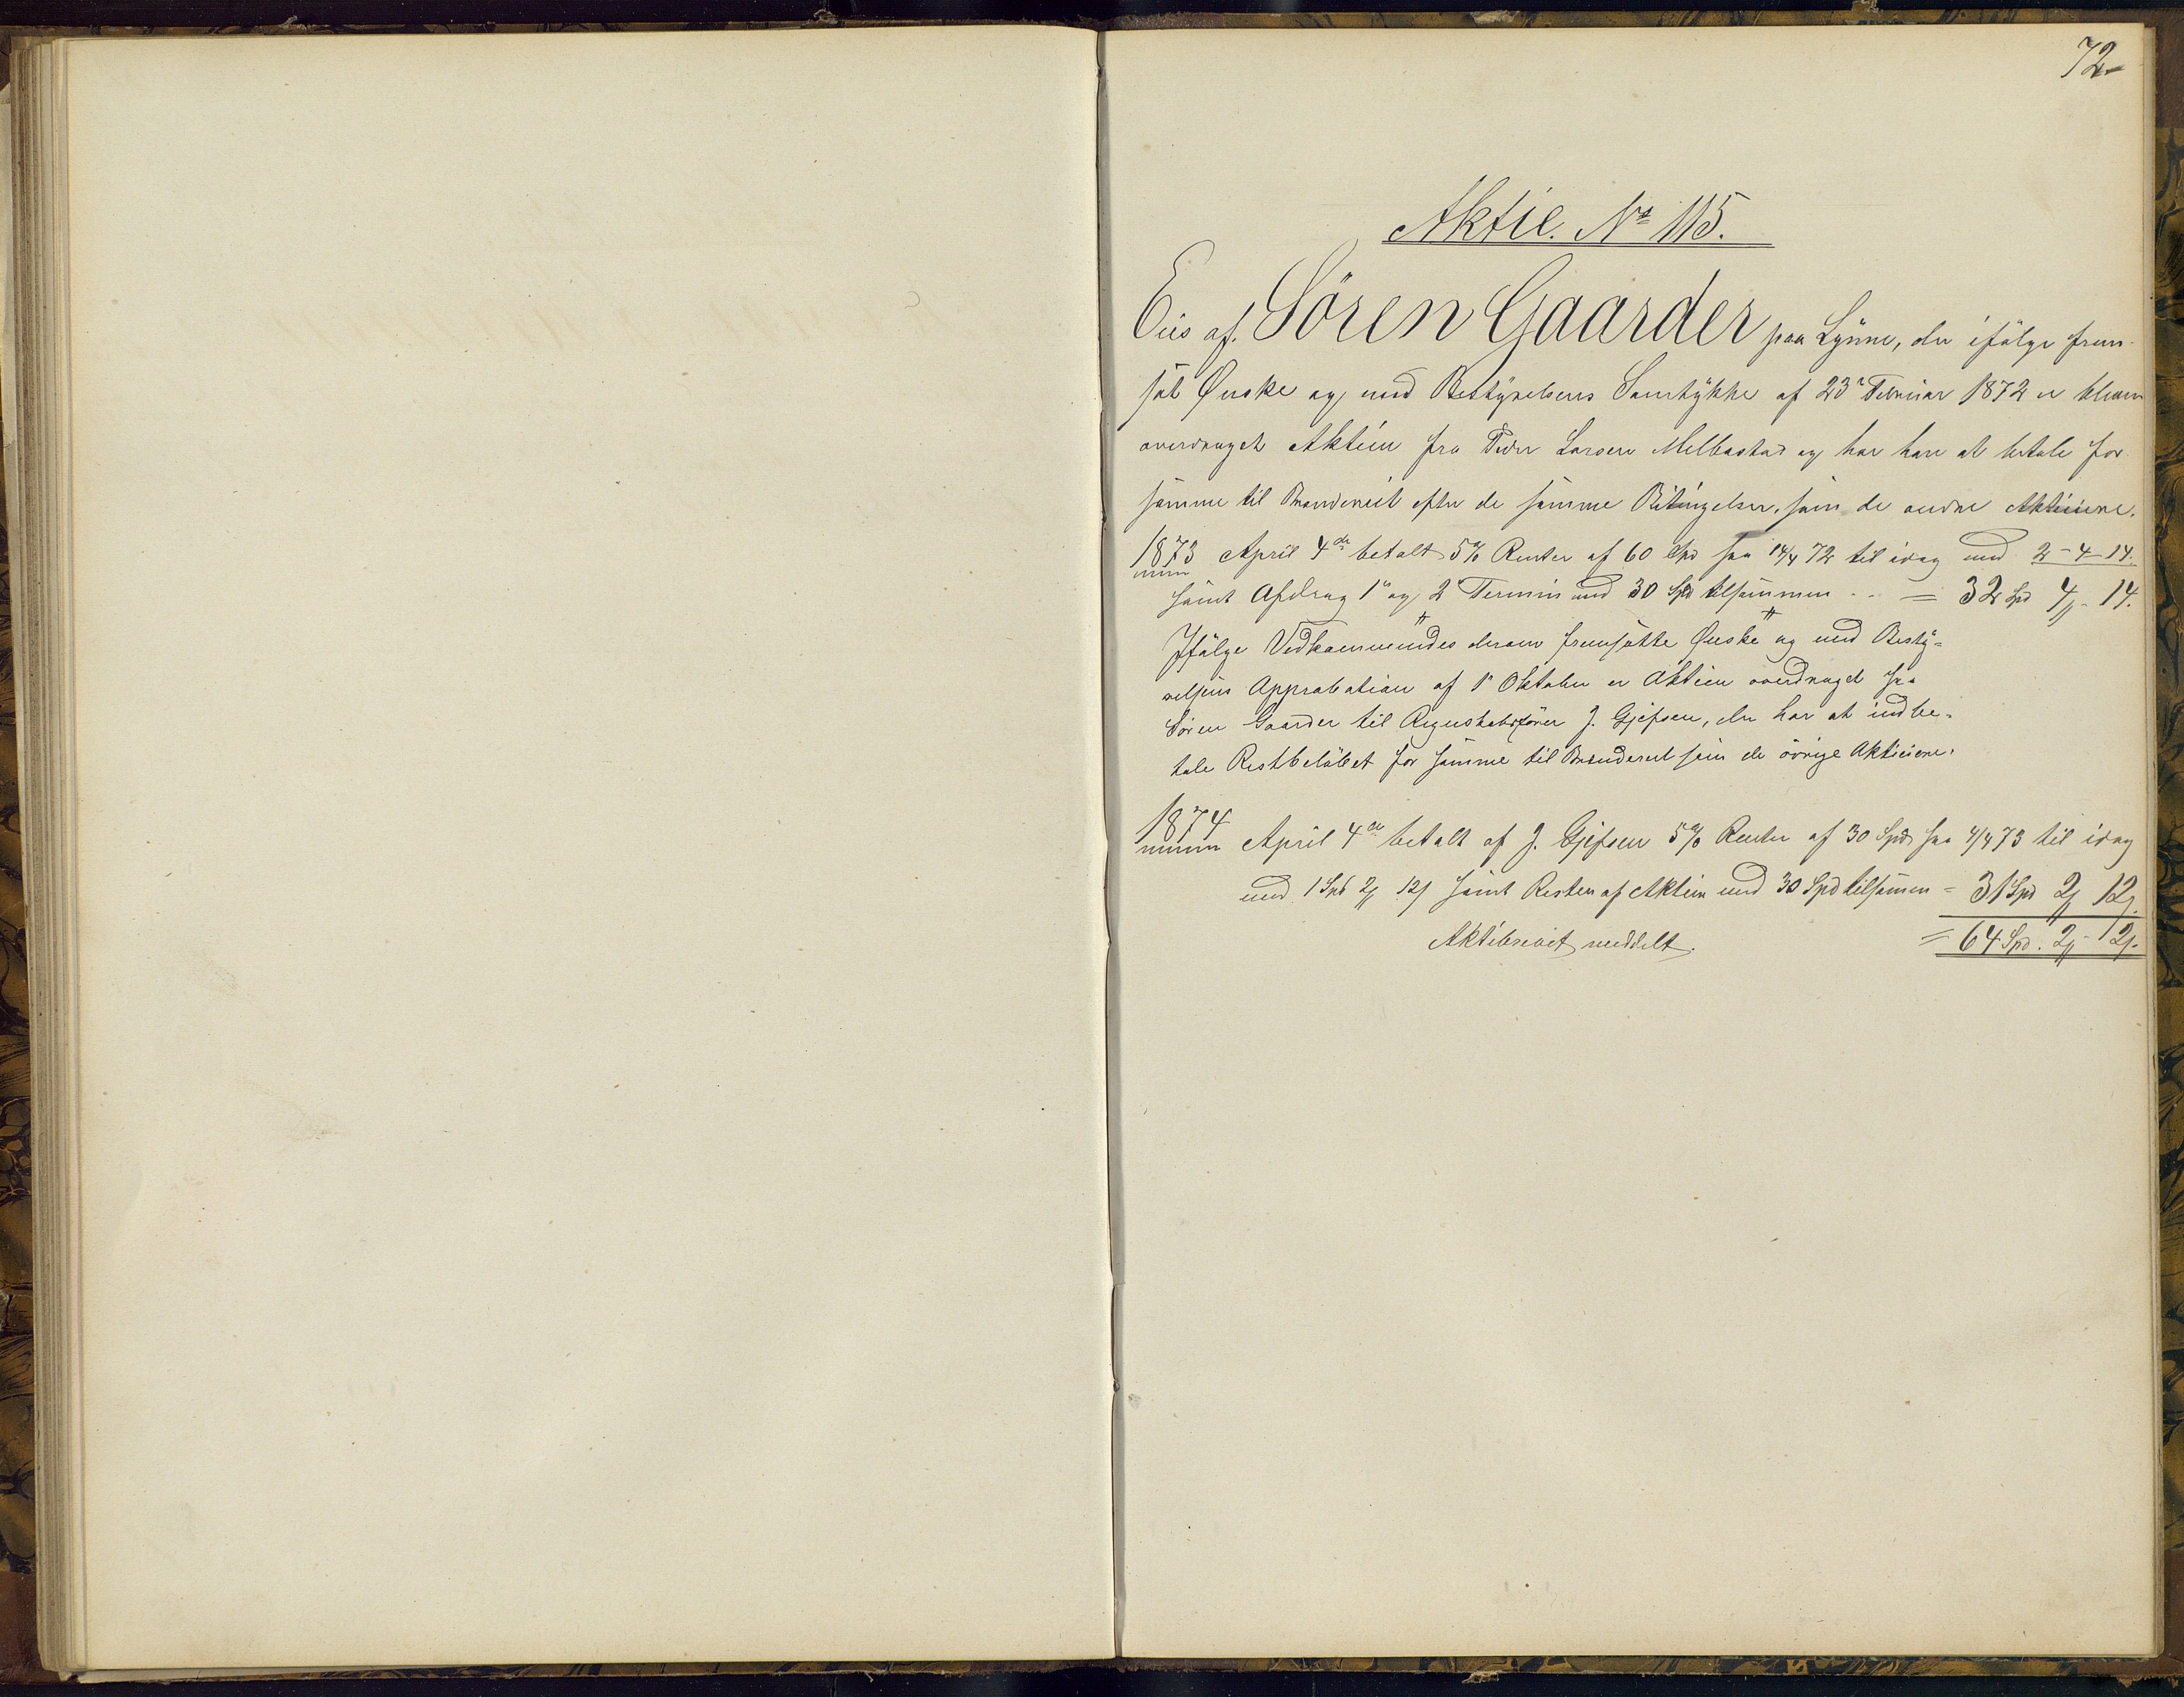 72
Aktie. No 115.
Eies af. Sören Gaarder paa Lynne, der ifölge frem-
sat Ønske og med Bestyrelsens Samtykke af 23de Februar 1872 er bleven
overdraget Aktien fra Peder Larsen Melbostad og har han at betale for
samme til Brænderiet efter de samme Betingelser, som de andre Aktieiere.
1873 April 4de betalt 5% Renter af 60 Spd fra 14/4 72 til idag med 2-4-14.
samt Afdrag 1ste og 2den Termin med 30 Spd tilsammen .. = 32 Spd 4 - 14.
Ifölge Vedkommendes derom fremsatte Ønske og med Besty-
relsens Approbation af 1ste Oktober er Aktien overdraget fra
Sören Gaarder til Regnskabsförer J. Gjefsen, der har at indbe-
tale Restbelöbet for samme til Brænderiet som de övrige Aktieiere.
1874 April 4de betalt af J. Gjefsen 5% Renter af 30 Spd fra 4/4 73 til idag
med 1 Spd 2 12 samt Resten af Aktien med 30 Spd tilsammen = 31 Spd 2 12.
Aktiebrevet meddelt. = 64 Spd. 2 - 12.